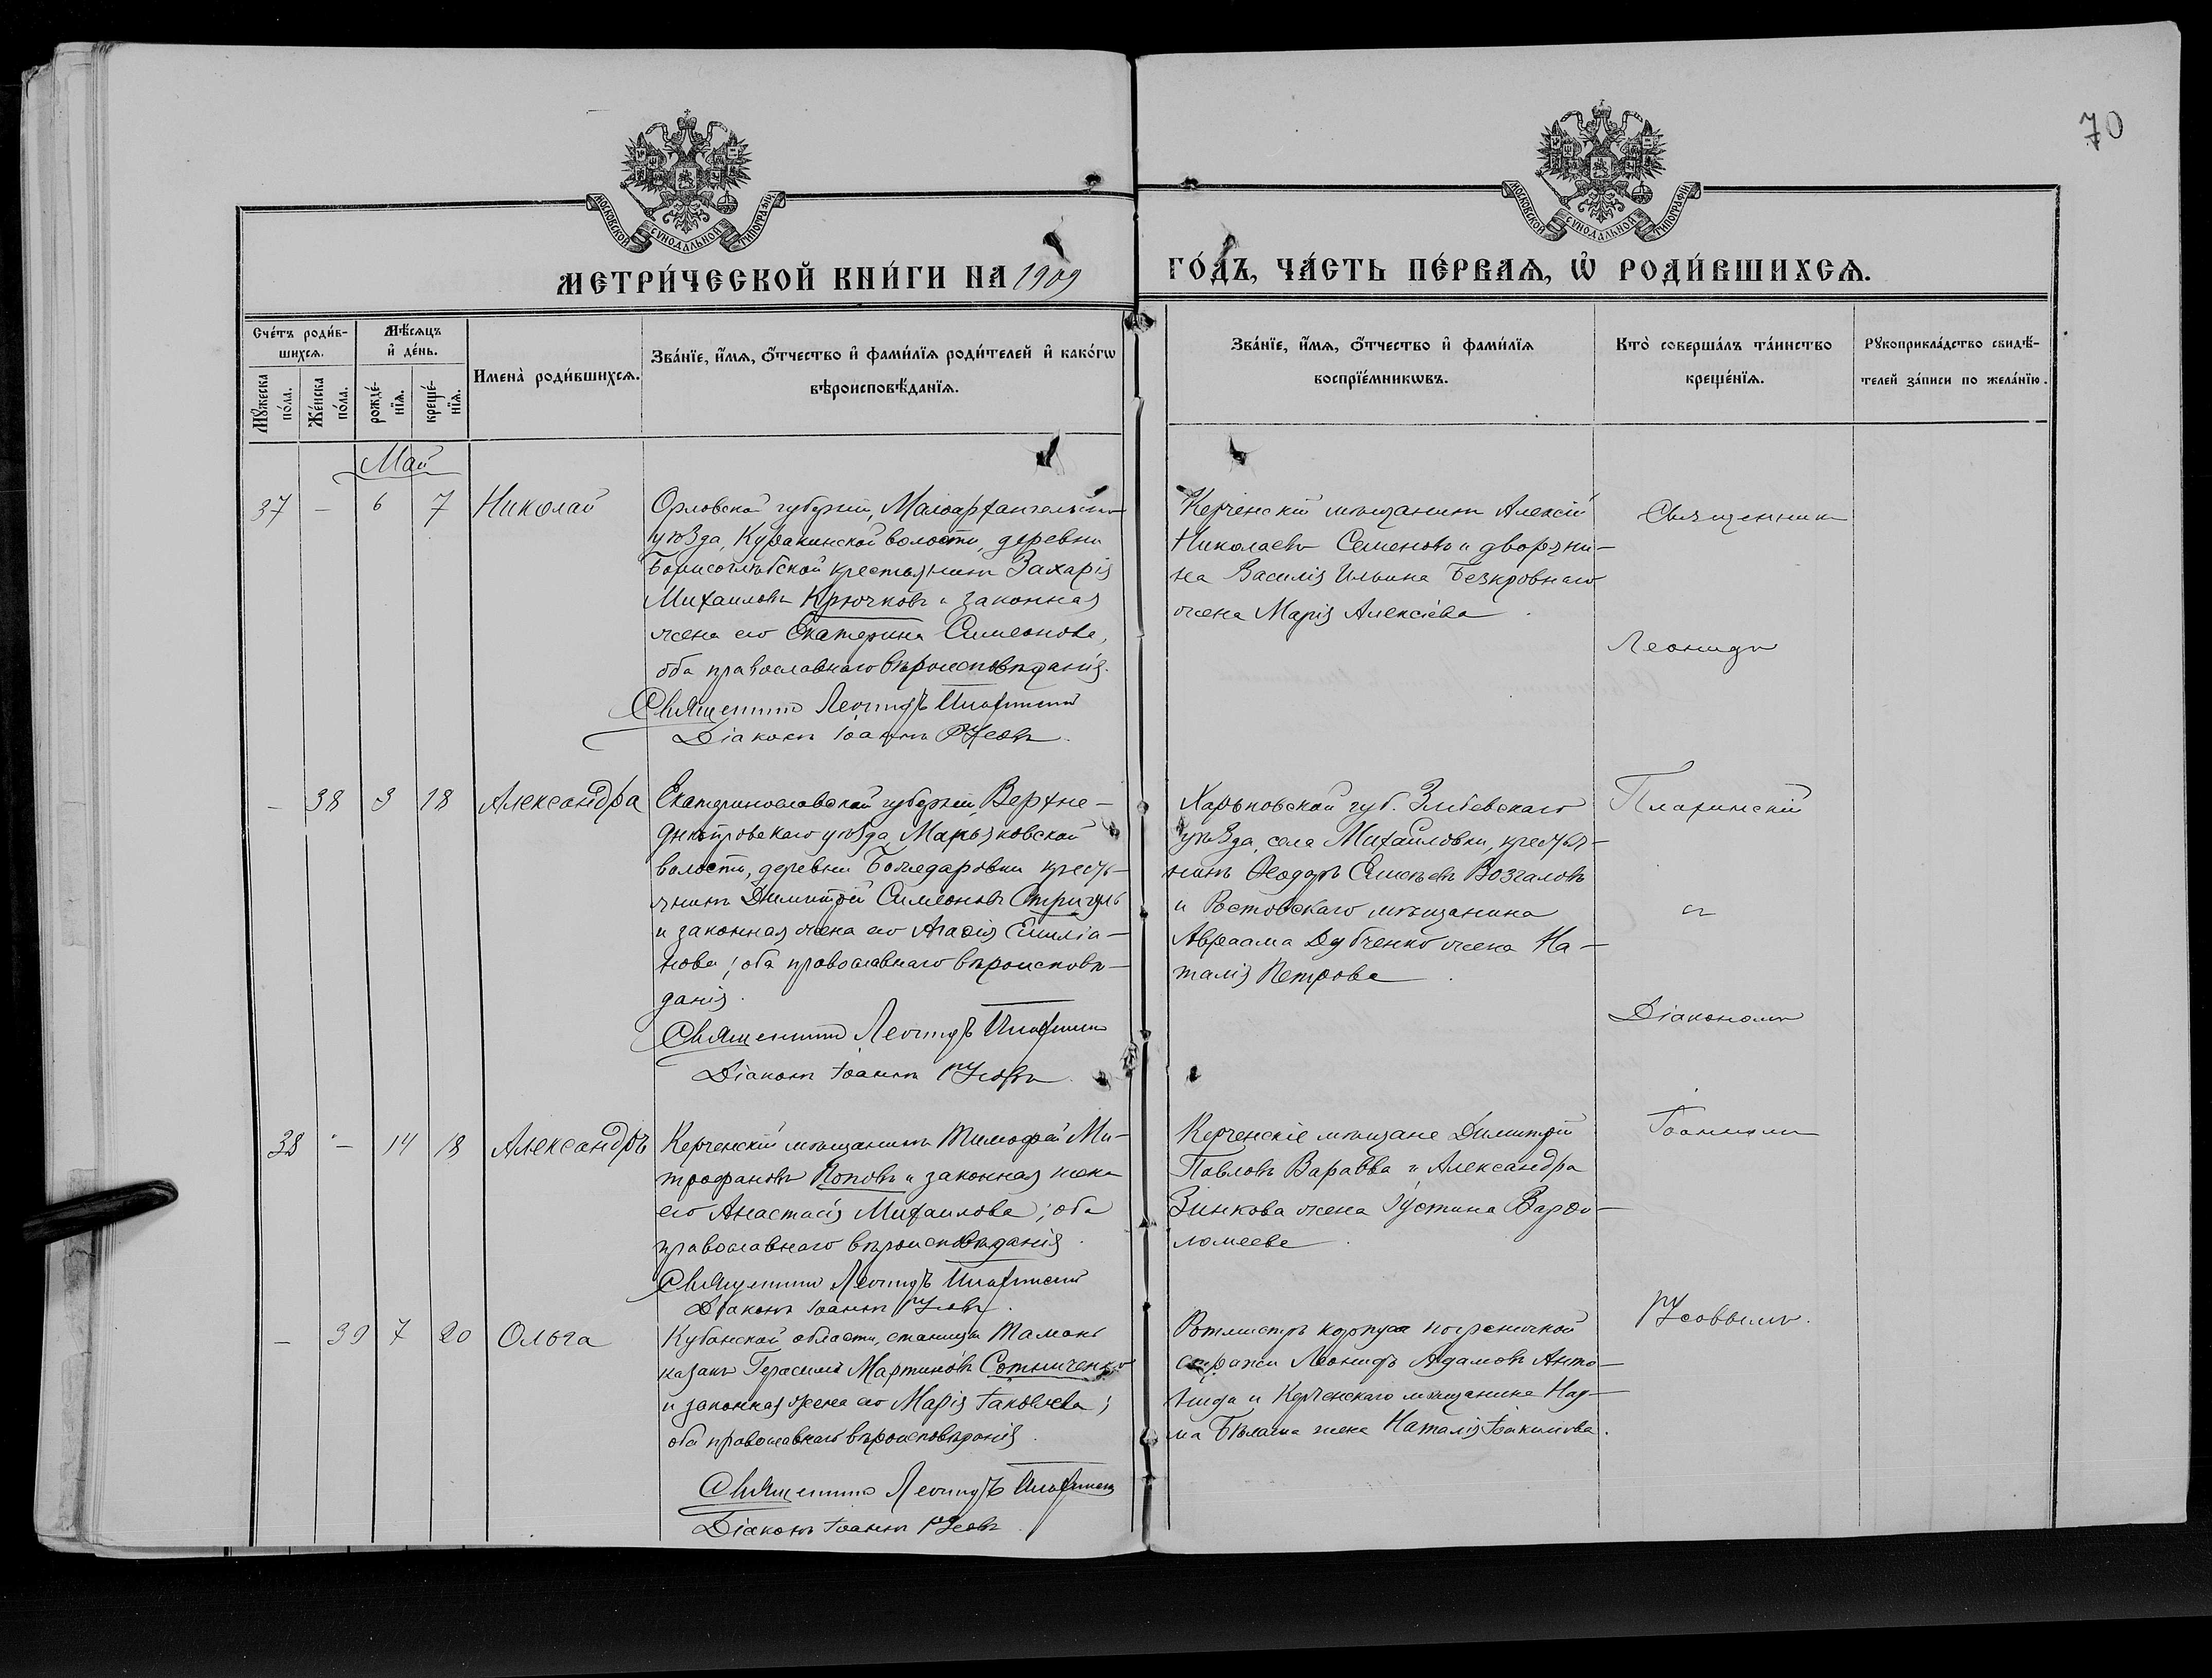 70
МОСКОВСКОЙ СѴНОДАЛЬНОЙ ТИПОГРАФІИ
МОСКОВСКОЙ СѴНОДАЛЬНОЙ ТИПОГРАФІИ
МЕТРИ́ЧЕСКОЙ КНИ́ГИ НА 1909
ГО́ДЪ, ЧА́СТЬ ПЕ́РВАѦ, Ѽ РОДИ́ВШИХСѦ.
Сче́тъ роди́в-
шихсѧ.
Мꙋ́жеска по́ла.
Же́нска по́ла.
Мѣ́сѧцъ
и҆ де́нь.
рожде́-
нїѧ.
креще́-
нїѧ.
Имена̀ роди́вшихсѧ.
Зва́нїе, и҆́мѧ, ѻ҆́тчество и҆ фами́лїѧ роди́телей и҆ како́гѡ
вѣроисповѣ́данїѧ.
Зва́нїе, и҆́мѧ, ѻ҆́тчество и҆ фами́лїѧ
воспрїе́мникѡвъ.
Кто̀ соверша́лъ та́инство
креще́нїѧ.
Рꙋкоприкла́дство свидѣ́-
телей за́писи по жела́нїю.
Май
37 — 6 7 Николай
Орловской губерніи, Малоархангельскаго
уѣзда, Куракинской волости, деревни
Борисоглѣбской крестьянинъ Захарія
Михаиловъ Крючковъ и законная
жена его Екатерина Симеонова,
оба православнаго вѣроисповѣданія.
Священникъ Леонидъ
Діаконъ Іоаннъ Русовъ
Керченскій мѣщанинъ Алексій
Николаевъ Семеновъ и дворяни-
на Василія Ильина Безкровнаго
жена Марія Алексіева
— 38 3 18 Александра
Екатеринославской губерніи, Верхне-
днѣпровскаго уѣзда, Марьяковской
волости, деревни Божедаровки кресть-
янинъ Димитрій Симеоновъ Стригуль
и законная жена его Агафія Емиліа-
нова; оба православнаго вѣроисповѣ-
данія.
Священникъ Леонидъ
Діаконъ Іоаннъ Русовъ
Харьковской губ. Зміевскаго
уѣзда, села Михайловки, крестья-
нинъ Ѳеодоръ Возгаловъ
и Ростовскаго мѣщанина
Авраама Дубченко жена На-
талія Петрова
38 — 14 18 Александръ
Керченскій мѣщанинъ Тимофей Ми-
трофановъ Поповъ и законная жена
его Анастасія Михаилова; оба
православнаго вѣроисповѣданія.
Священникъ Леонидъ
Діаконъ Іоаннъ Русовъ
Керченскіе мѣщане Димитрій
Павловъ Варавва и Александра
Зинкова жена Іустина Варѳо-
ломеева
— 39 7 20 Ольга
Кубанской области, станицы Тамань
казакъ Герасимъ Мартиновъ Сотниченко
и законная жена его Марія Іаковлева;
оба православнаго вѣроисповѣданія.
Священникъ Леонидъ
Діаконъ Іоаннъ Русовъ
Ротмистръ корпуса пограничной
стражи Леонидъ Адамовъ Анто-
и Керченскаго мѣщанина
жена Наталія Іоакимова.
Священникъ
Леонидъ
съ
Діакономъ
Іоанномъ
Русовымъ.